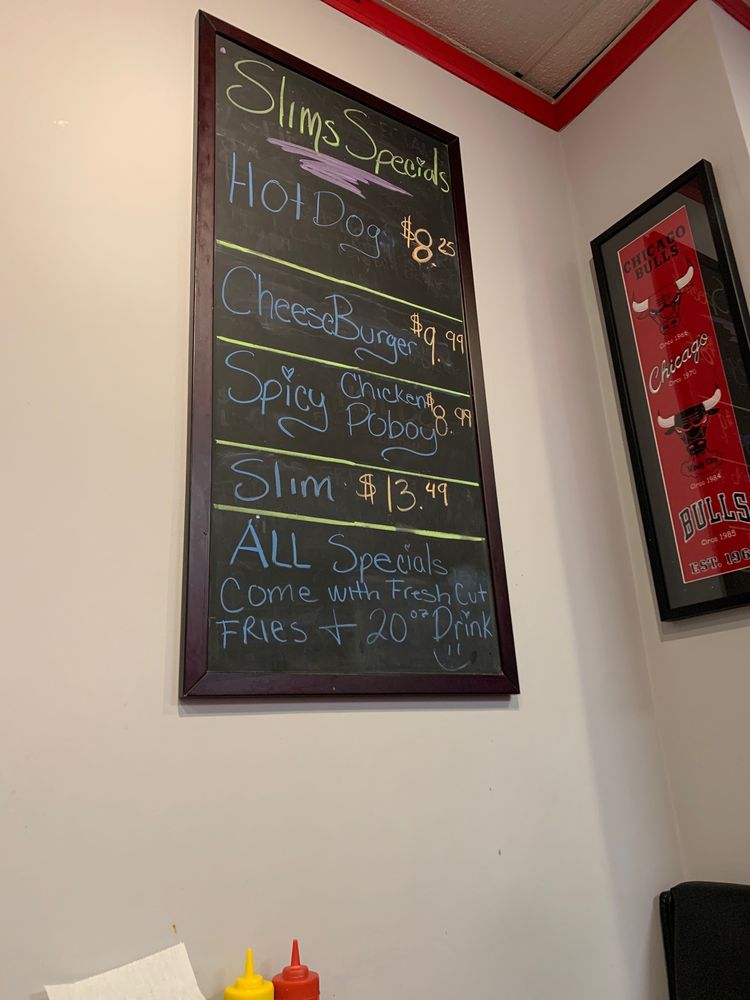 Slims Specials
Hot Dog $8.25
CheeseBurger $9.99
Spicy Chicken Poboy $8.99
Slim $13.49
ALL Specials
Come with Fresh Cut
FRIES + 20 oz Drink
CHICAGO
BULLS
Circa 1966
Chicago
Circa 1970
Circa 1984
BULLS
Circa 1985
EST. 196